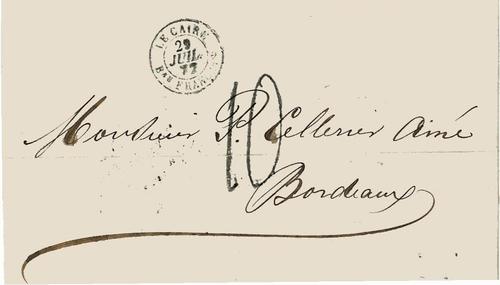 LE CAIRE
29
JUIL.
77
Bau FRANÇAIS
10
Monsieur P. Cellerier Ainé
Bordeaux